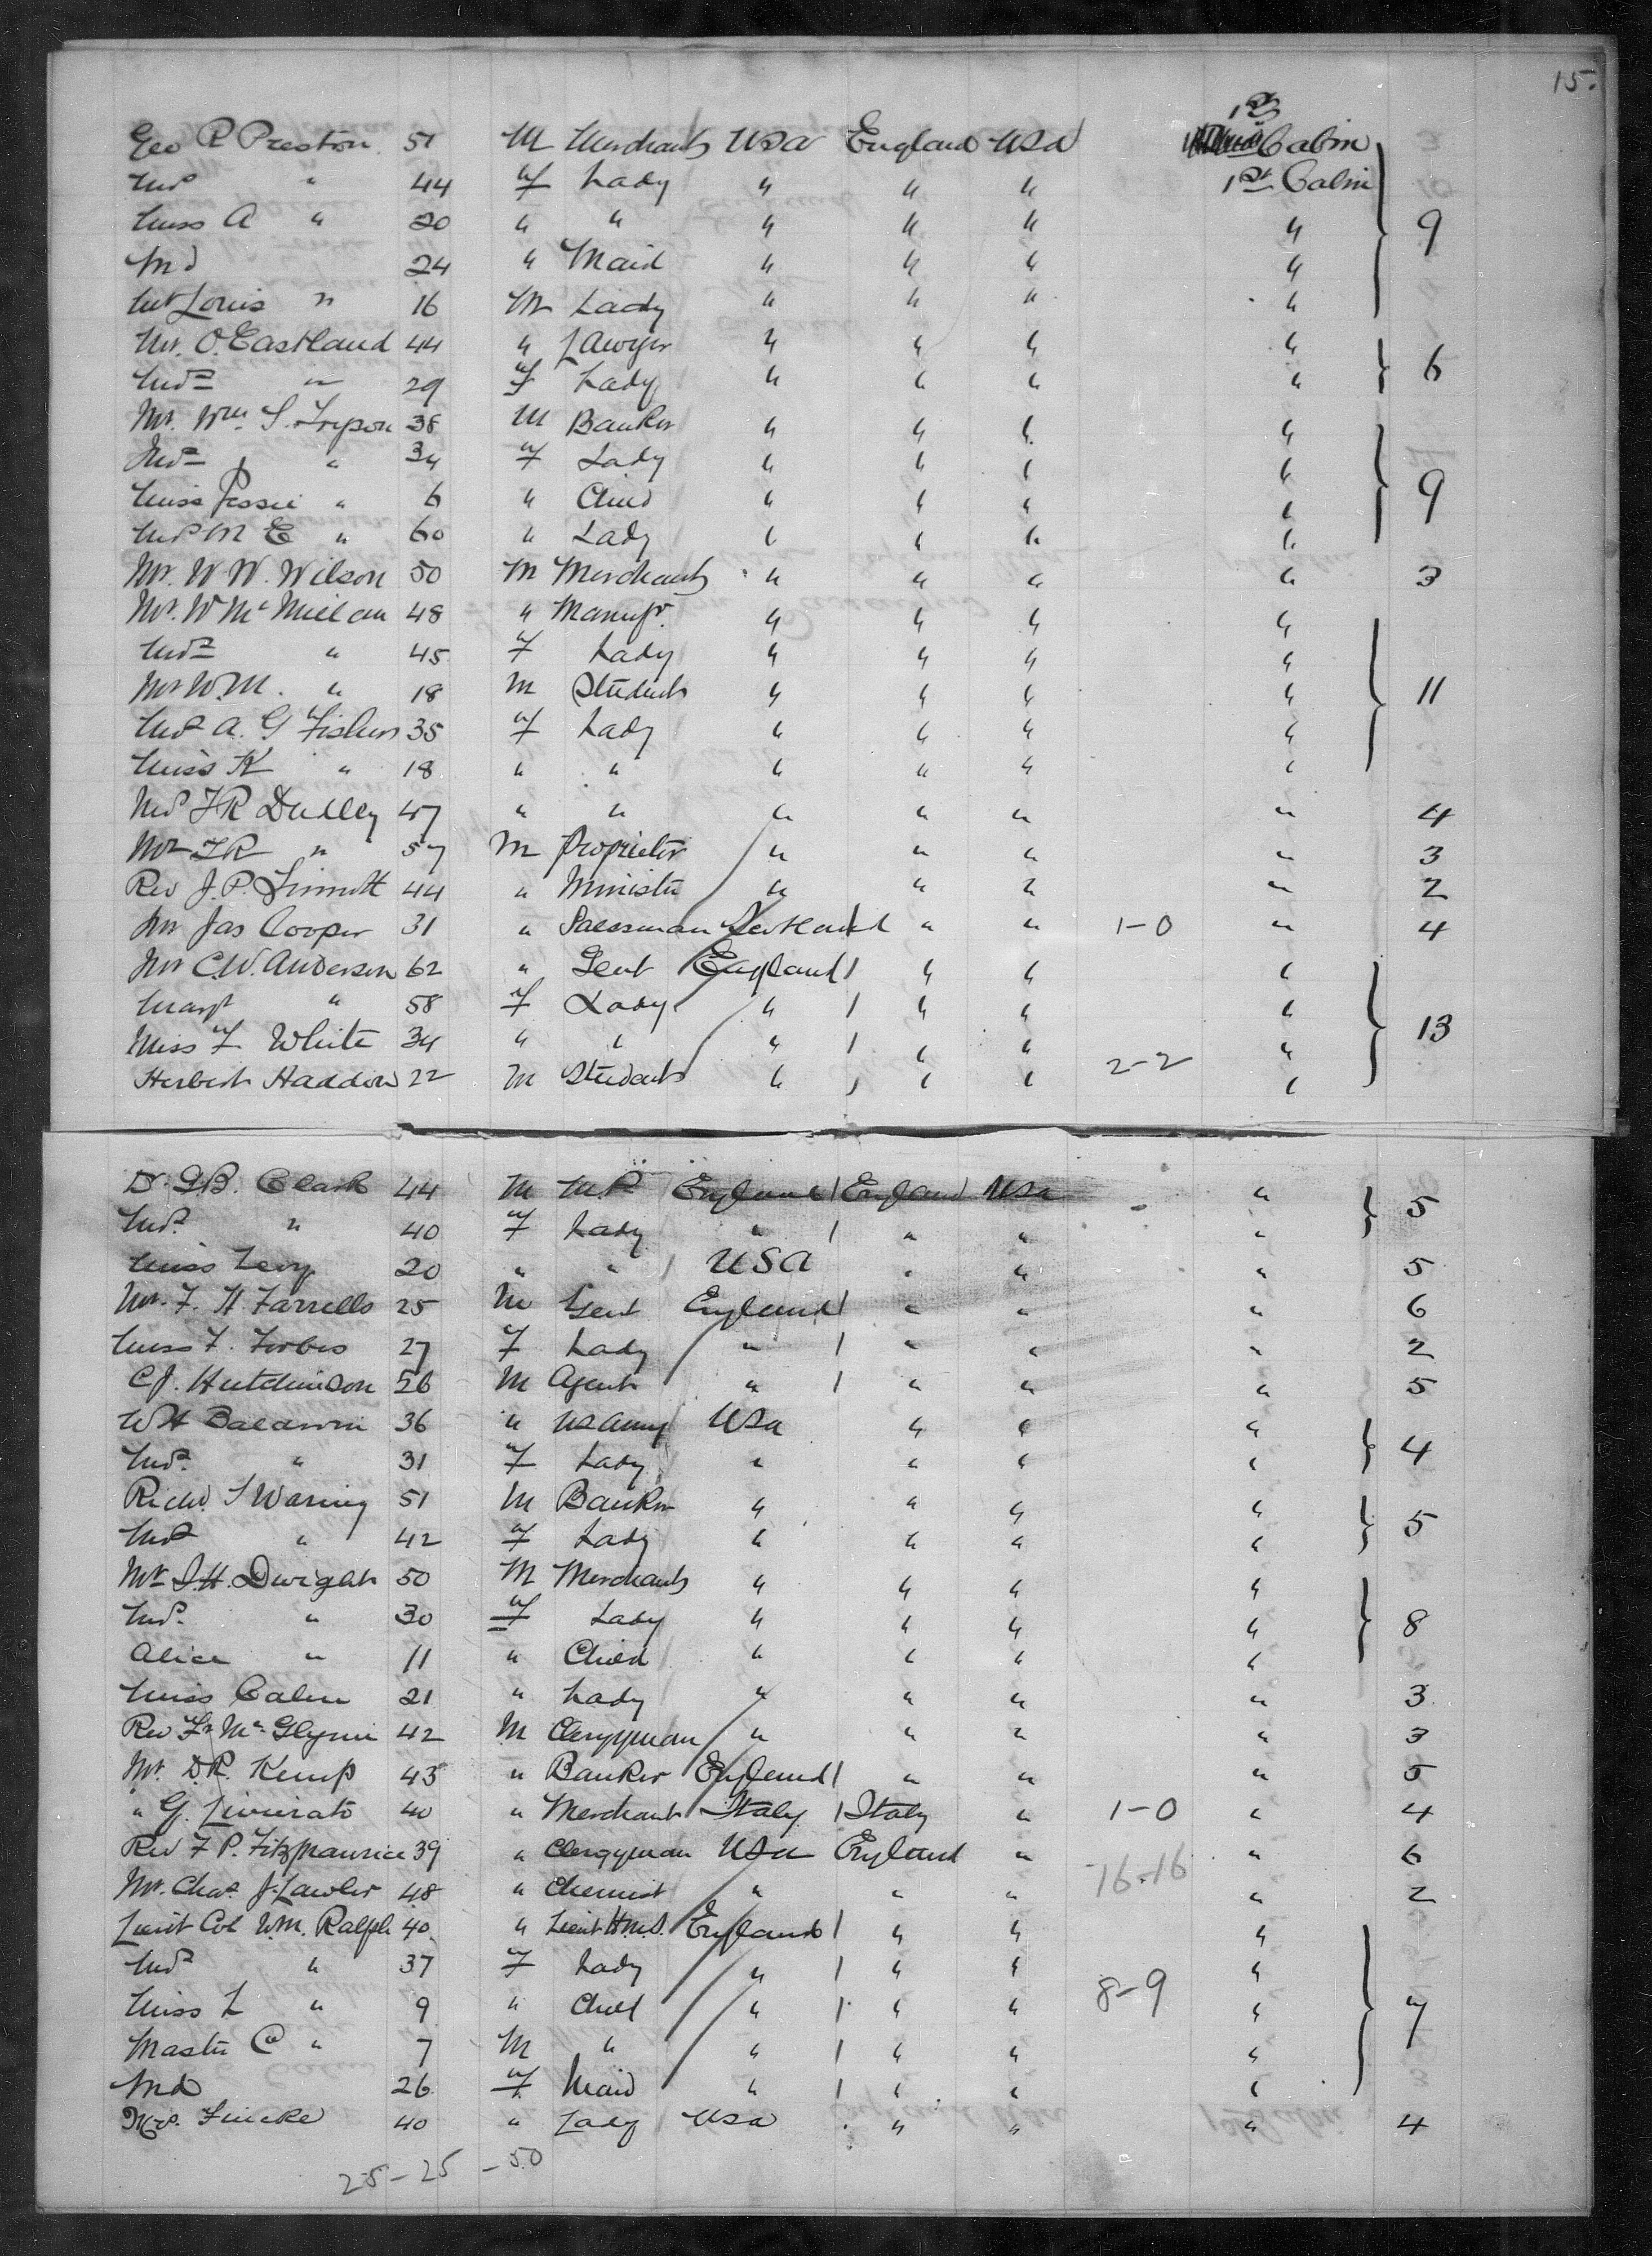 15.
1st
Geo R Preston 51 M Merchant USA England USA Cabin
Mrs " 44 F Lady " " " 1st Cabin
Miss A " 20 " " " " " " 9
Md 24 " Maid " " " "
Mr Louis " 16 M Lady " " " "
Mr. O. Eastland 44 " Lawyer " " " "
Mrs " 29 F Lady " " " " 6
Mr. Wm. S. 38 M Banker " " " "
Mrs " 34 F Lady " " " "
Miss Jessie " 6 " Child " " " " 9
Mrs M E " 60 " Lady " " " "
Mr. W W. Wilson 50 M Merchant " " " " 3
Mr. W McMillan 48 " Manufr. " " " "
Mrs " 45 F Lady " " " "
Mr W. M. " 18 M Student " " " " 11
Mrs A. G Fisher 35 F Lady " " " "
Miss K " 18 " " " " " "
Mrs F R Dudley 47 " " " " " " 4
Mr F R " 57 M Proprietor " " " " 3
Rev J. P. 44 " Minister " " " " 2
Mr Jas Cooper 31 " Salesman Scotland " " 1-0 " 4
Mr C. W. Anderson 62 " Gent England " " "
Margt " 58 F Lady " " " "
Miss F White 34 " " " " " " 13
Herbert Haddon 22 M Student " " " 2-2 "
Dr. G B. Clark 44 M M.P. England England USA "
Mrs. " 40 F Lady " " " " 5
Miss Levy 20 " " USA " " " 5
Mr. F. H. Farrells 25 M Gent England " " " 6
Miss F. Forbes 27 F Lady " " " " 2
C J. Hutchinson 56 M Agent " " " " 5
W H Baldwin 36 " US Army USA " " "
Mrs. " 31 F Lady " " " " 4
Richd. S Waring 51 M Banker " " " "
Mrs " 42 F Lady " " " " 5
Mr. S. H. Dwight 50 M Merchant " " " "
Mrs. " 30 F Lady " " " " 8
Alice " 11 " Child " " " "
Miss Calm 21 " Lady " " " " 3
Rev Fr McGlynn 42 M Clergyman " " " " 3
Mr. D. R. Kemp 43 " Banker England " " " 5
" G. 40 " Merchant Italy Italy " 1-0 " 4
Rev F P. Fitzmaurice 39 " Clergyman USA England " " 6
Mr. Chas. J. Lawler 48 " Chemist " " " 16-16 " 2
Lieut Col W. M. Ralph 40 " Lieut H.M.S. England " " "
Mrs " 37 F Lady " " " "
Miss L " 9 " Child " " " 8-9 " 7
Master C " 7 M " " " " "
Md 26 F Maid " " " "
Mrs. Fincke 40 " Lady USA " " " 4
25-25 - 50